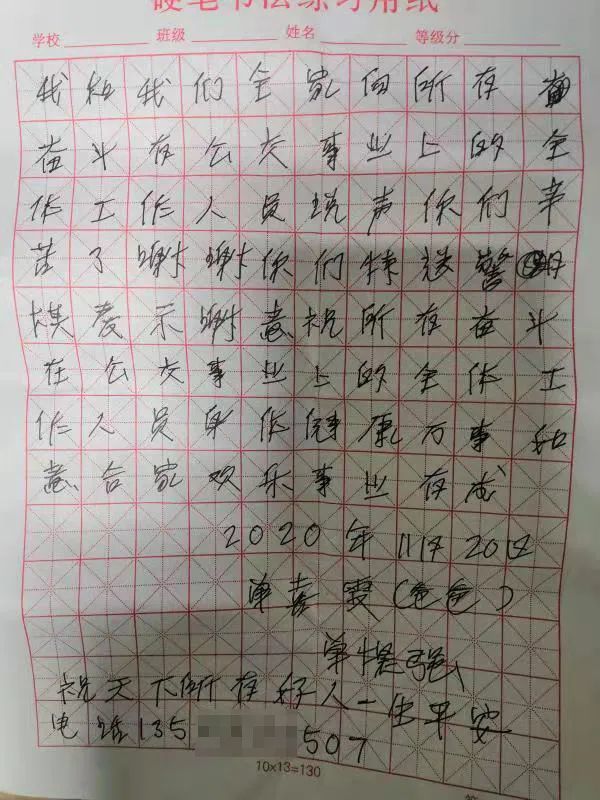 硬笔书法练习用纸
学校 班级 姓名 等级分
我和我们全家向所有
奋斗在公交事业上的全
体工作人员说声你们辛
苦了谢谢你们特送警
棋表示谢意祝所有奋斗
在公交事业上的全体工
作人员身体健康万事如
意合家欢乐事业有成
2020年11月20日
单春霞(爸爸)
单 强
祝天下所有好人一生平安
电话135 507
10x13=130